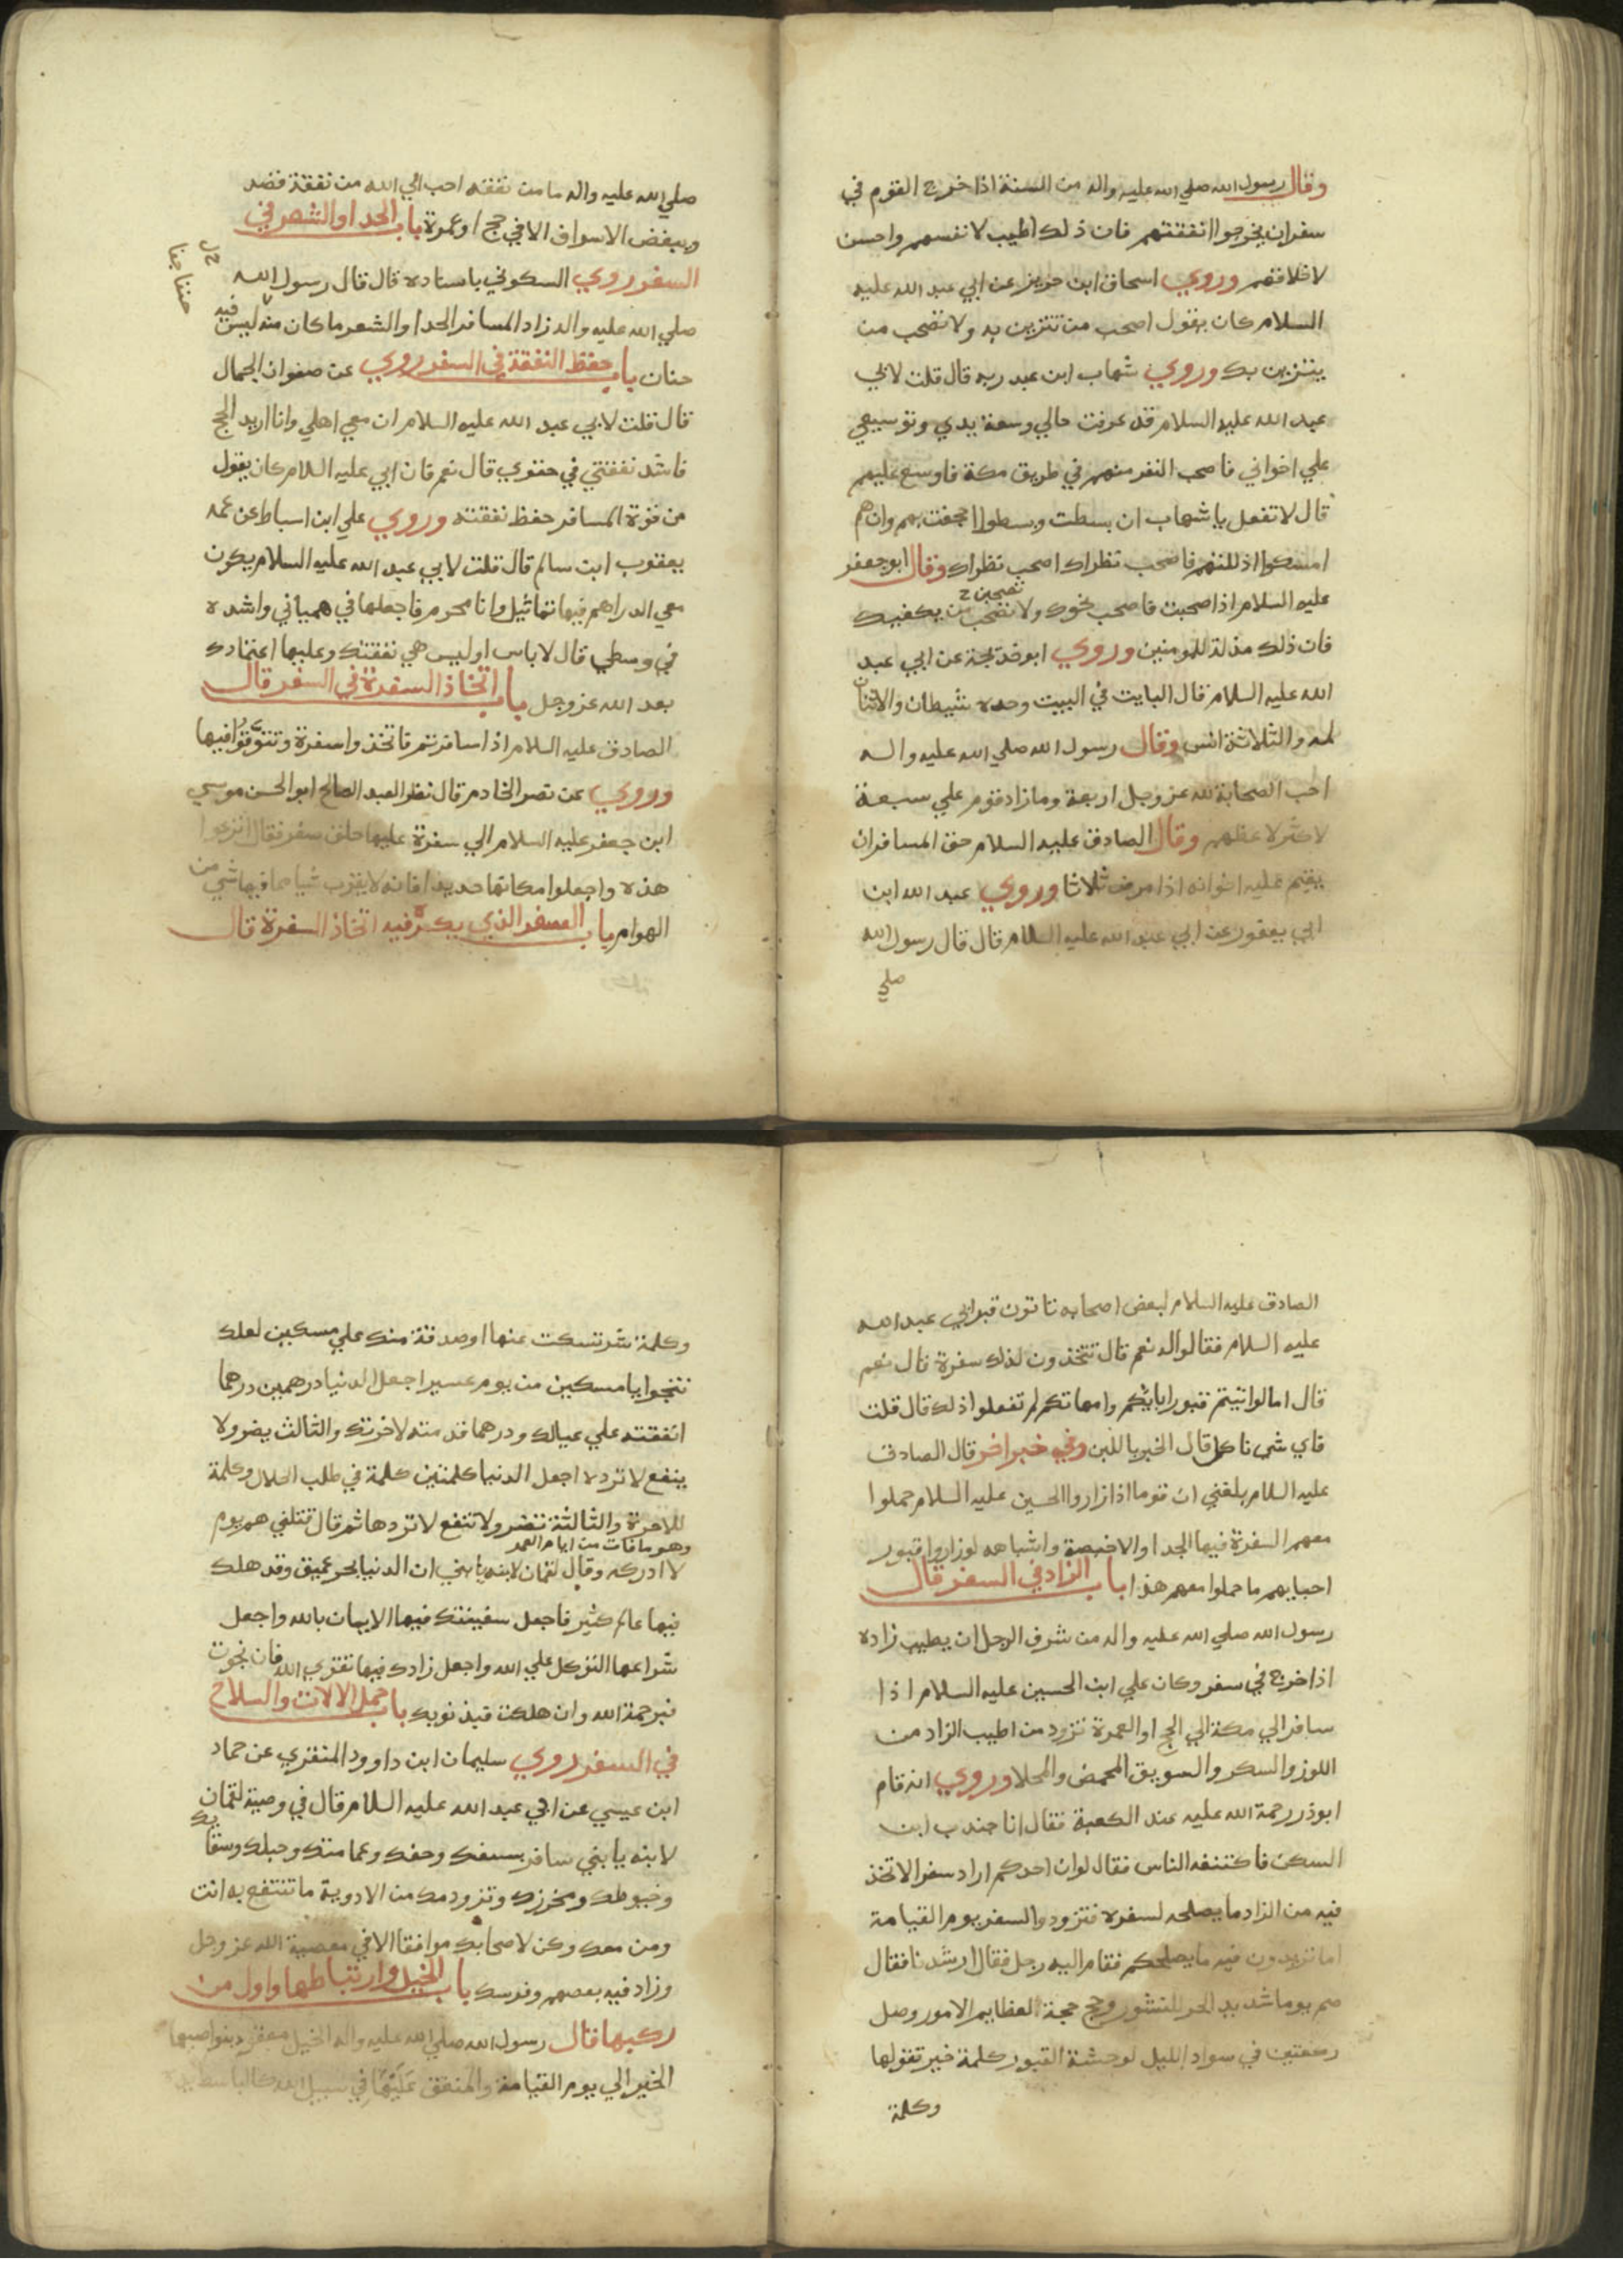 وقال رسول الله صلي الله عليه واله من السنة اذا خرج القوم في
سفر ان يخرجوا انفقتهم فان ذلك اطيب لانفسهم واحسن
لاخلاقهم وروي اسحاق ابن حريز عن ابي عبد الله عليه
السلام كان يقول اصحب من تتزين به ولا تصحب من
يتزين بك وروي شهاب ابن عبد ربه قال قلت لابي
عبد الله عليه السلام قد عرفت حالي وسعة يدي وتوسيعي
علي اخواني فاصحب النفر منهم في طريق مكة فاوسع عليهم
قال لا تفعل يا شهاب ان بسطت وبسطوا اجحفت بهم وان هم
امسكوا اذللتهم فاصحب نظراك اصحب نظراك وقال ابو جعفر
عليه السلام اذا صحبت فاصحب نحوك ولا تصحب من يكفيك
فان ذلك مذلة للمومنين وروي ابو خديجة عن ابي عبد
الله عليه السلام قال البايت في البيت وحده شيطان والاثنان
لمه والثلاثة انس وقال رسول الله صلي الله عليه واله
احب الصحابة لله عز وجل اربعة وما زاد قوم علي سبعة
لا كثر لا عظهم وقال الصادق عليه السلام حق المسافر ان
يقيم عليه اخوانه اذا مرض ثلاثا وروي عبد الله ابن
ابي يعفور عن ابي عبد الله عليه السلام قال قال رسول الله
صلي
صلي الله عليه واله ما من نفقة احب الي الله من نفقة قصد
ويبغض الاسراف الا في حج او عمرة باب الحدا والشعر في
السفر روي السكوني باسناده قال قال رسول الله
صلي الله عليه واله زاد المسافر الحدا والشعر ما كان منه ليس فيه
حنان باب حفظ النفقة في السفر روي عن صفوان الجمال
قال قلت لابي عبد الله عليه السلام ان معي اهلي وانا اريد الحج
فاشد نفقتي في حقوي قال نعم فان ابي عليه السلام كان يقول
من قوة المسافر حفظ نفقته وروي علي ابن اسباط عن عمه
يعقوب ابن سالم قال قلت لابي عبد الله عليه السلام يكون
معي الدراهم فيها تماثيل وانا محرم فاجعلها في همياني واشده
في وسطي قال لا باس اوليس هي نفقتك وعليها اعتمادك
بعد الله عز وجل باب اتخاذ السفرة في السفر قال
الصادق عليه السلام اذا سافرتم فاتخذوا سفرة وتنوقوا فيها
وروي عن نصر الخادم قال نظر العبد الصالح ابو الحسن موسي
ابن جعفر عليه السلام الي سفرة عليها حلق صفر فقال انزعوا
هذه واجعلوا مكانها حديدا فانه لا يقرب شيا مما فيها شي من
الهوام باب السفر الذي يكره فيه اتخاذ السفرة قال
الصادق عليه السلام لبعض اصحابه تاتون قبر ابي عبد الله
عليه السلام فقالوا له نعم قال تتخذون لذلك سفرة قال نعم
قال اما لو اتيتم قبور ابايكم وامهاتكم لم تفعلوا ذلك قال قلت
فاي شي ناكل قال الخبز باللبن وفي خبر اخر قال الصادق
عليه السلام بلغني ان قوما اذا زاروا الحسين عليه السلام حملوا
معهم السفرة فيها الجدا والاخبصة واشباهه لو زاروا قبور
احبايهم ما حملوا معهم هذا باب الزاد في السفر قال
رسول الله صلي الله عليه واله من شرف الرجل ان يطيب زاده
اذا خرج في سفر وكان علي ابن الحسين عليه السلام اذا
سافر الي مكة الي الحج او العمرة تزود من اطيب الزاد من
اللوز والسكر والسويق المحمض والمحلا وروي انه قام
ابوذر رحمة الله عليه عند الكعبة فقال انا جندب ابن
السكن فاكتنفه الناس فقال لو ان احدكم اراد سفرا لاتخذ
فيه من الزاد ما يصلحه لسفره فتزودوا لسفر يوم القيامة
اما تريدون فيه ما يصلحكم فقام اليه رجل فقال ارشدنا فقال
صم يوما شديد الحر للنشور وحج حجة لعظايم الامور وصل
ركعتين في سواد الليل لوحشة القبور كلمة خير تقولها
وكلمة
وكلمة شر تسكت عنها او صدقة منك علي مسكين لعلك
تنجوا يا مسكين من يوم عسير اجعل الدنيا درهمين درهما
انفقته علي عيالك ودرهما قدمته لاخرتك والثالث يضر ولا
ينفع لا ترده اجعل الدنيا كلمتين كلمة في طلب الحلال وكلمة
للاخرة والثالثة تضر ولا تنفع لا تردها ثم قال قتلني هم يوم
وهو ما فات من ايام العمر
لا ادركه وقال لقمان لابنه يا بني ان الدنيا بحر عميق وقد هلك
فيها عالم كثير فاجعل سفينتك فيها الايمان بالله واجعل
شراعها التوكل علي الله واجعل زادك فيها تقوي الله فان نجوت
فبرحمة الله وان هلكت فبذنوبك باب حمل الالات والسلاح
في السفر روي سليمان ابن داوود المنقري عن حماد
ابن عيسي عن ابي عبد الله عليه السلام قال في وصية لقمان
لابنه يا بني سافر بسيفك وخفك وعمامتك وحبلك وسقايك
وخيوطك ومخرزك وتزود معك من الادوية ما تنتفع به انت
ومن معك وكن لاصحابك موافقا الا في معصية الله عز وجل
وزاد فيه بعضهم وفرسك باب الخيل وارتباطها واول من
ركبها قال رسول الله صلي الله عليه واله الخيل معقود بنواصيها
الخير الي يوم القيامة والمنفق عليها في سبيل الله كالباسط يده